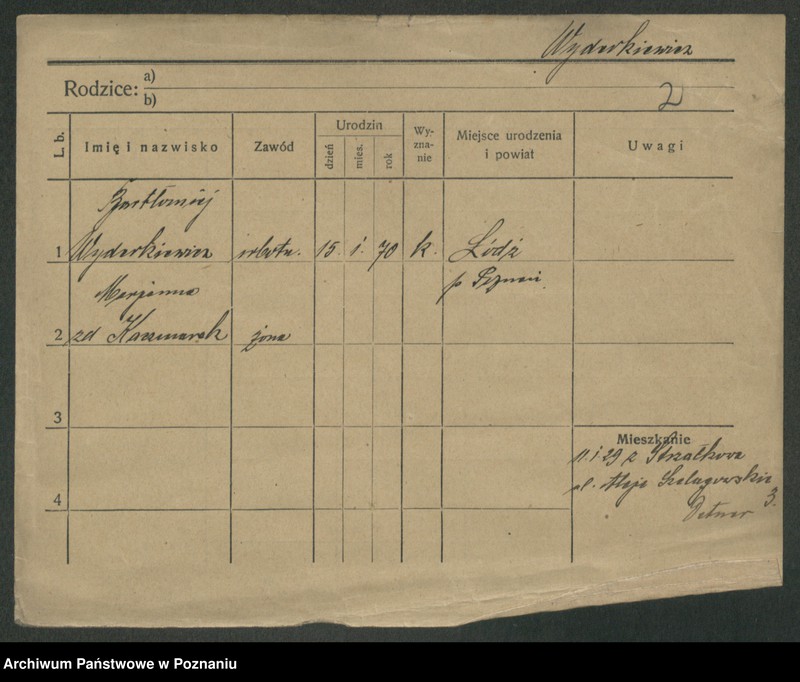 Wyderkiewicz
Rodzice: a)
b)
2
L. b.
Imię i nazwisko
Zawód
Urodzin
dzień
mies.
rok
Wy-
zna-
nie
Miejsce urodzenia
i powiat
Uwagi
Bartłomiej
1 Wyderkiewicz robotn. 15. 1. 70 k. Łódź
Marjanna p. Poznań
2 zd Kaczmarek żona
3
Mieszkanie
11.1.29 z Strzałkowa
ul. Aleje Szelągowskie
4
3.